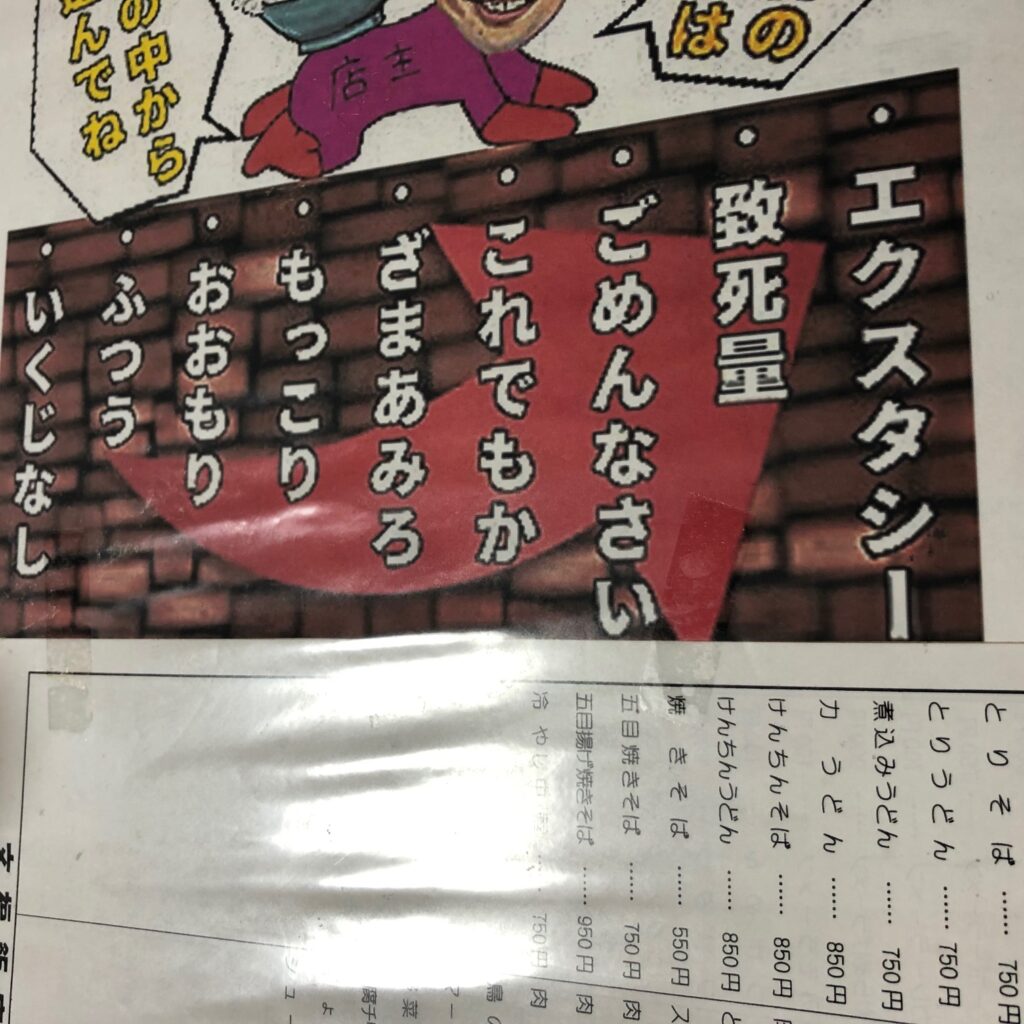 の
は
の中から
んでね
店主
・エクスタシー
・致死量
・ごめんなさい
・これでもか
・ざまあみろ
・もっこり
・おおもり
・ふつう
・いくじなし
とりそば……750円
とりうどん……750円
煮込みうどん……750円
力うどん……850円
けんちんそば……850円
けんちんうどん……850円
焼きそば……550円
五目焼きそば……750円
五目揚げ焼きそば……950円
冷やし
750円
肉
肉
肉